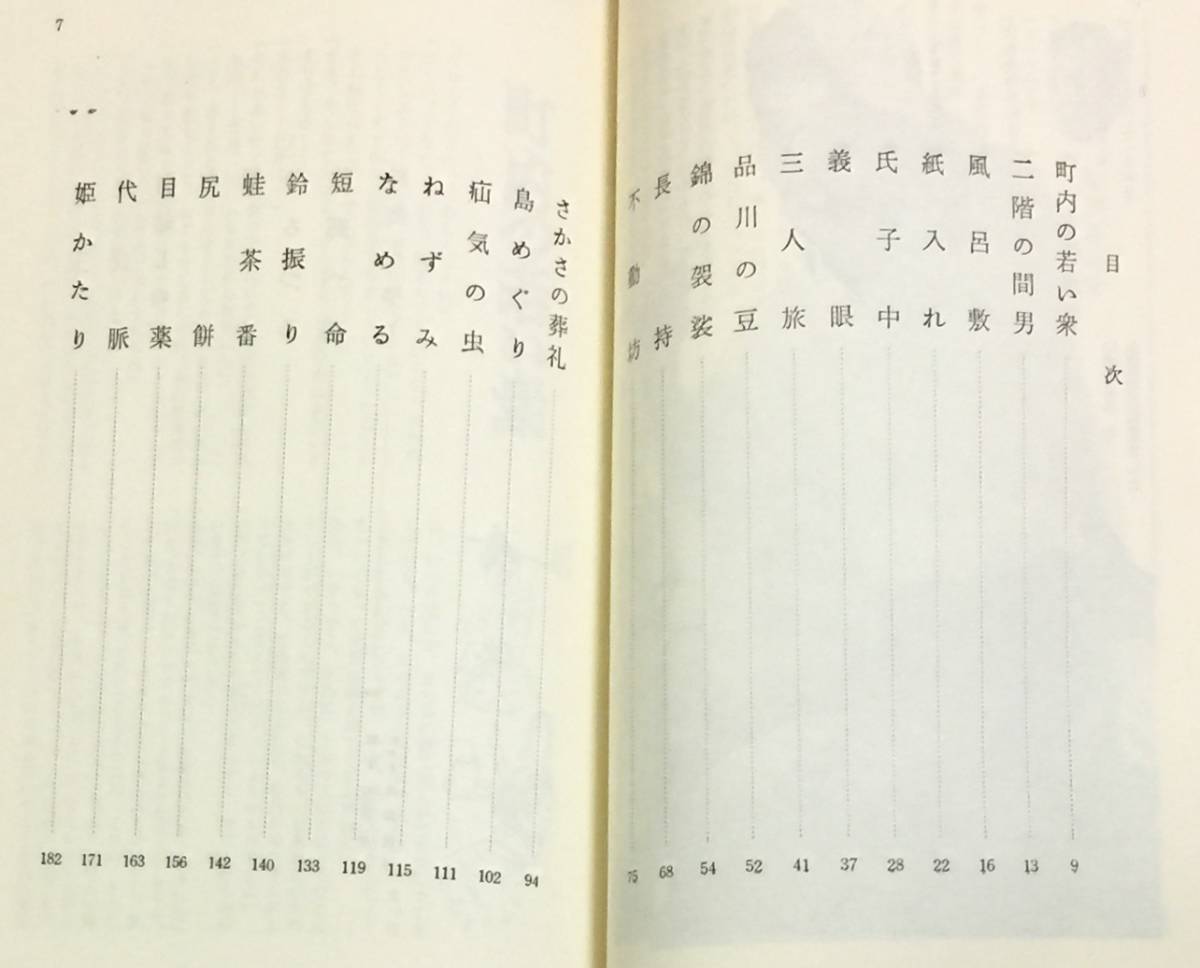 目次
町内の若い衆 9
二階の間男 13
風呂敷 16
紙入れ 22
氏子中 28
義眼 37
三人旅 41
品川の豆 52
錦の袈裟 54
長持 68
不動坊 75
さかさの葬礼 94
島めぐり 102
疝気の虫 111
ねずみ 115
なめる 119
短命 133
鈴振り 140
蛙茶番 142
尻餅 156
目薬 163
代脈 171
姫かたり 182
7